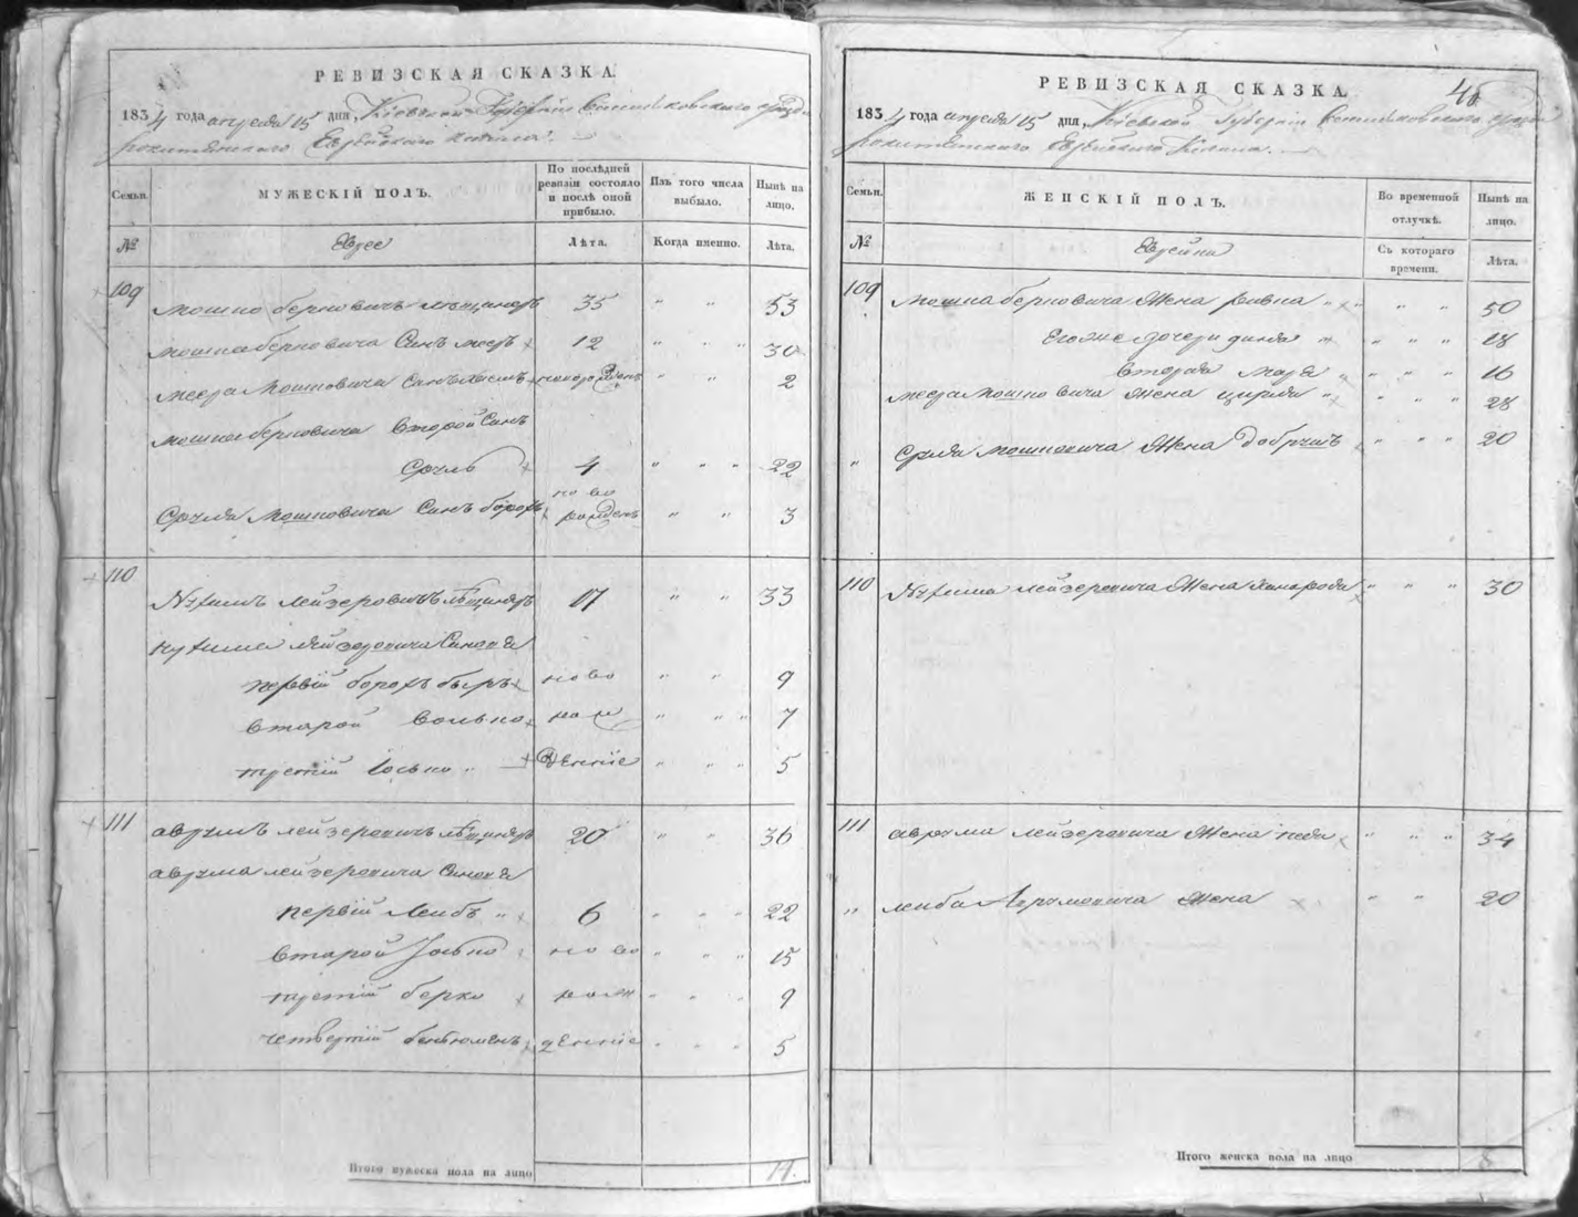 РЕВИЗСКАЯ СКАЗКА.
1834 года апреля 15 дня, Кіевской Губерніи Васильковского уезда
рокитянского Еврейского Кагала.
Семьи. МУЖЕСКІЙ ПОЛЪ. По послѣдней ревизіи состояло и послѣ оной прибыло. Изъ того числа выбыло. Нынѣ на лицо.
№ Евреи Лѣта. Когда именно. Лѣта.
109 мошко берковичъ 35 " " 53
мошка берковича Синъ меер 12 " " " 30
меера Мошковича Синъ новорожденъ " " 2
мошка берковича второй Синъ
Сруль 4 " " " 22
Сруля Мошковича Синъ борохъ ново рожденъ " " 3
110 Нухимъ лейзеровичъ 17 " " 33
Нухима лейзеровича Синовя
первій борохъ беръ ново " " 9
второй волько рож " " " 7
третій Іосько " денніе " " " 5
111 аврумъ лейзеровичъ 20 " " 36
аврума лейзеровича Синовя
первій Лейбъ " 6 " " " 22
второй Іосько ново " " " 15
третій берко рож " " " 9
четвертій беньюменъ денніе " " " 5
Итого мужеска пола на лицо 14.
46
РЕВИЗСКАЯ СКАЗКА.
1834 года апреля 15 дня, Кіевской Губерніи Васильковского уезда
рокитянского Еврейского Кагала.
Семьи. ЖЕНСКІЙ ПОЛЪ. Во временной отлучкѣ. Нынѣ на лицо.
№ Еврейки Съ котораго времени. Лѣта.
109 мошка берковича Жена ривка " " " " 50
Егоже дочери " " " " 18
вторая " " " " 16
меера Мошковича Жена цирля " " " " 28
" Сруля мошковича Жена добришъ " " " 20
110 Нухима лейзеровича Жена " " " 30
111 аврума лейзеровича Жена " " " 34
" лейба Аврумовича Жена " " 20
Итого женска пола на лицо 8